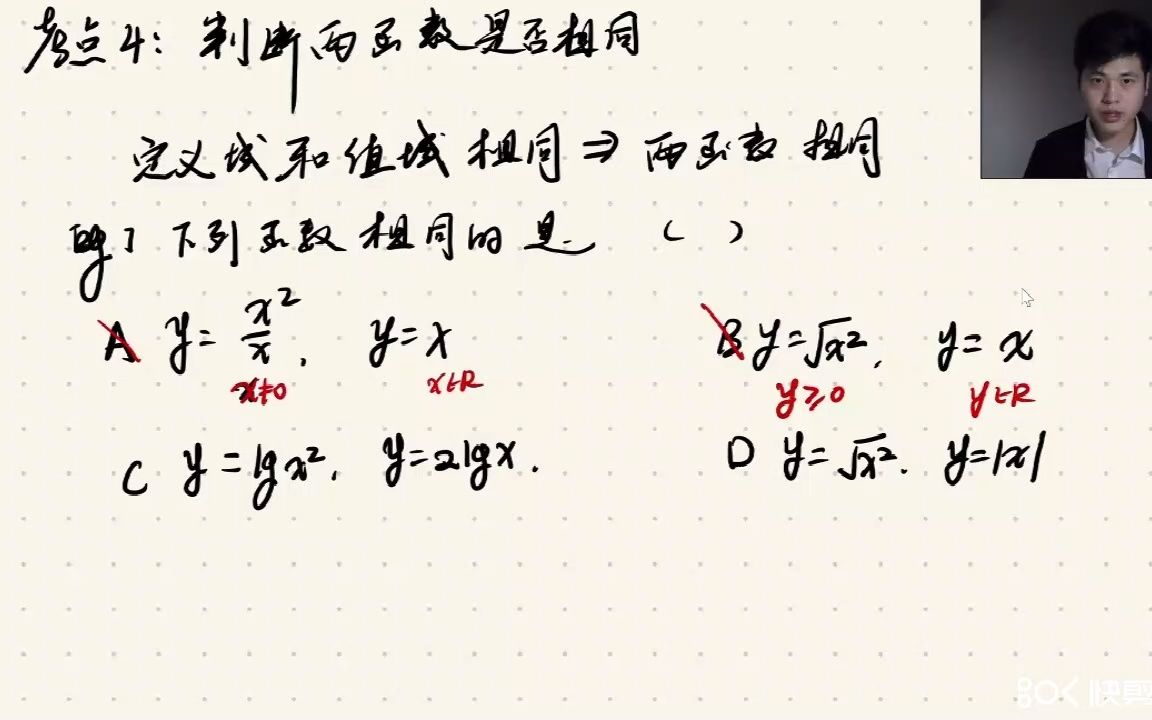 考点4: 判断两函数是否相同
定义域和值域相同 ⇒ 两函数相同
例1 下列函数相同的是 ( )
A y = x²/x, y = x B y = √x², y = x
x≠0 x∈R y≥0 y∈R
C y = lgx², y = 2lgx. D y = √x². y = |x|
快剪